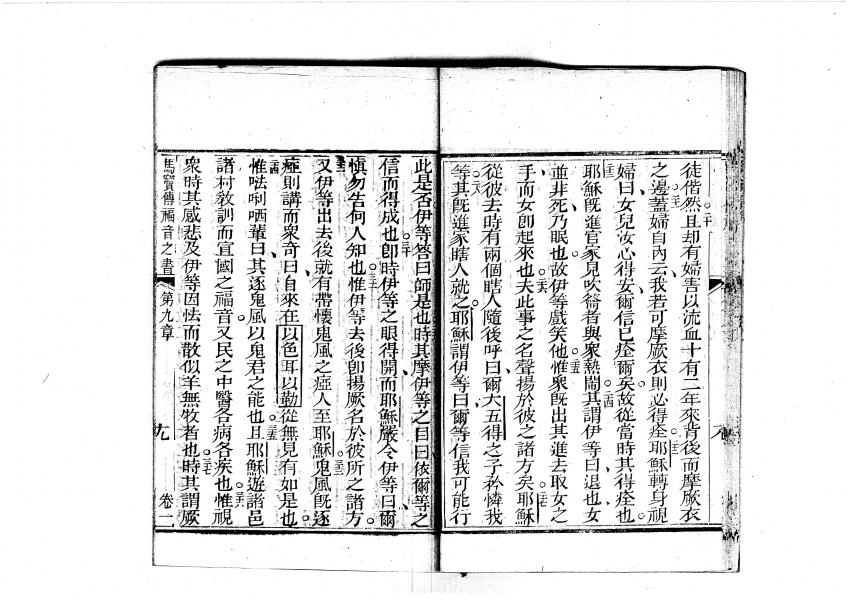 徒偕然且却有婦害以流血十有二年來背後而摩厥衣
之邊蓋婦自內云我若可摩厥衣則必得痊耶穌轉身視
婦曰女兒汝心得安爾信已痊爾矣故從當時其得痊也
耶穌既進官家見吹龠者與衆熱鬧其謂伊等曰退也女
並非死乃眠也故伊等戲笑他惟衆既出其進去取女之
手而女卽起來也夫此事之名聲揚於彼之諸方矣耶穌
從彼去時有兩個瞎人隨後呼曰爾大五得之子矜憐我
等其既進家瞎人就之耶穌謂伊等曰爾等信我可能行
此是否伊等答曰師是也時其摩伊等之目曰依爾等之
信而得成也卽時伊等之眼得開而耶穌嚴令伊等曰爾
愼勿告何人知也惟伊等去後卽揚厥名於彼所之諸方
又伊等出去後就有帶懷鬼風之瘂人至耶穌鬼風既逐
瘂則講而衆奇曰自來在以色耳以勒從無見有如是也
惟𠵽唎哂輩曰其逐鬼風以鬼君之能也且耶穌遊諸邑
諸村敎訓而宣國之福音又民之中醫各病各疾也惟視
衆時其感悲及伊等因怯而散似羊無牧者也時其謂厥
馬竇傳福音之書 第九章 九 卷一